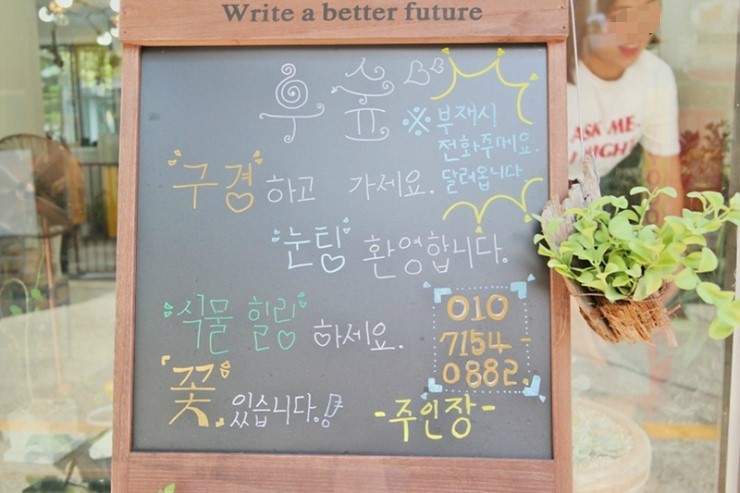 Write a better future
후숲
※ 부재시
전화주세요.
달려옵니다
구경하고 가세요.
눈팅 환영합니다.
식물 힐링 하세요.
010
7154-
0882.
꽃 있습니다.!
-주인장-
ASK ME.